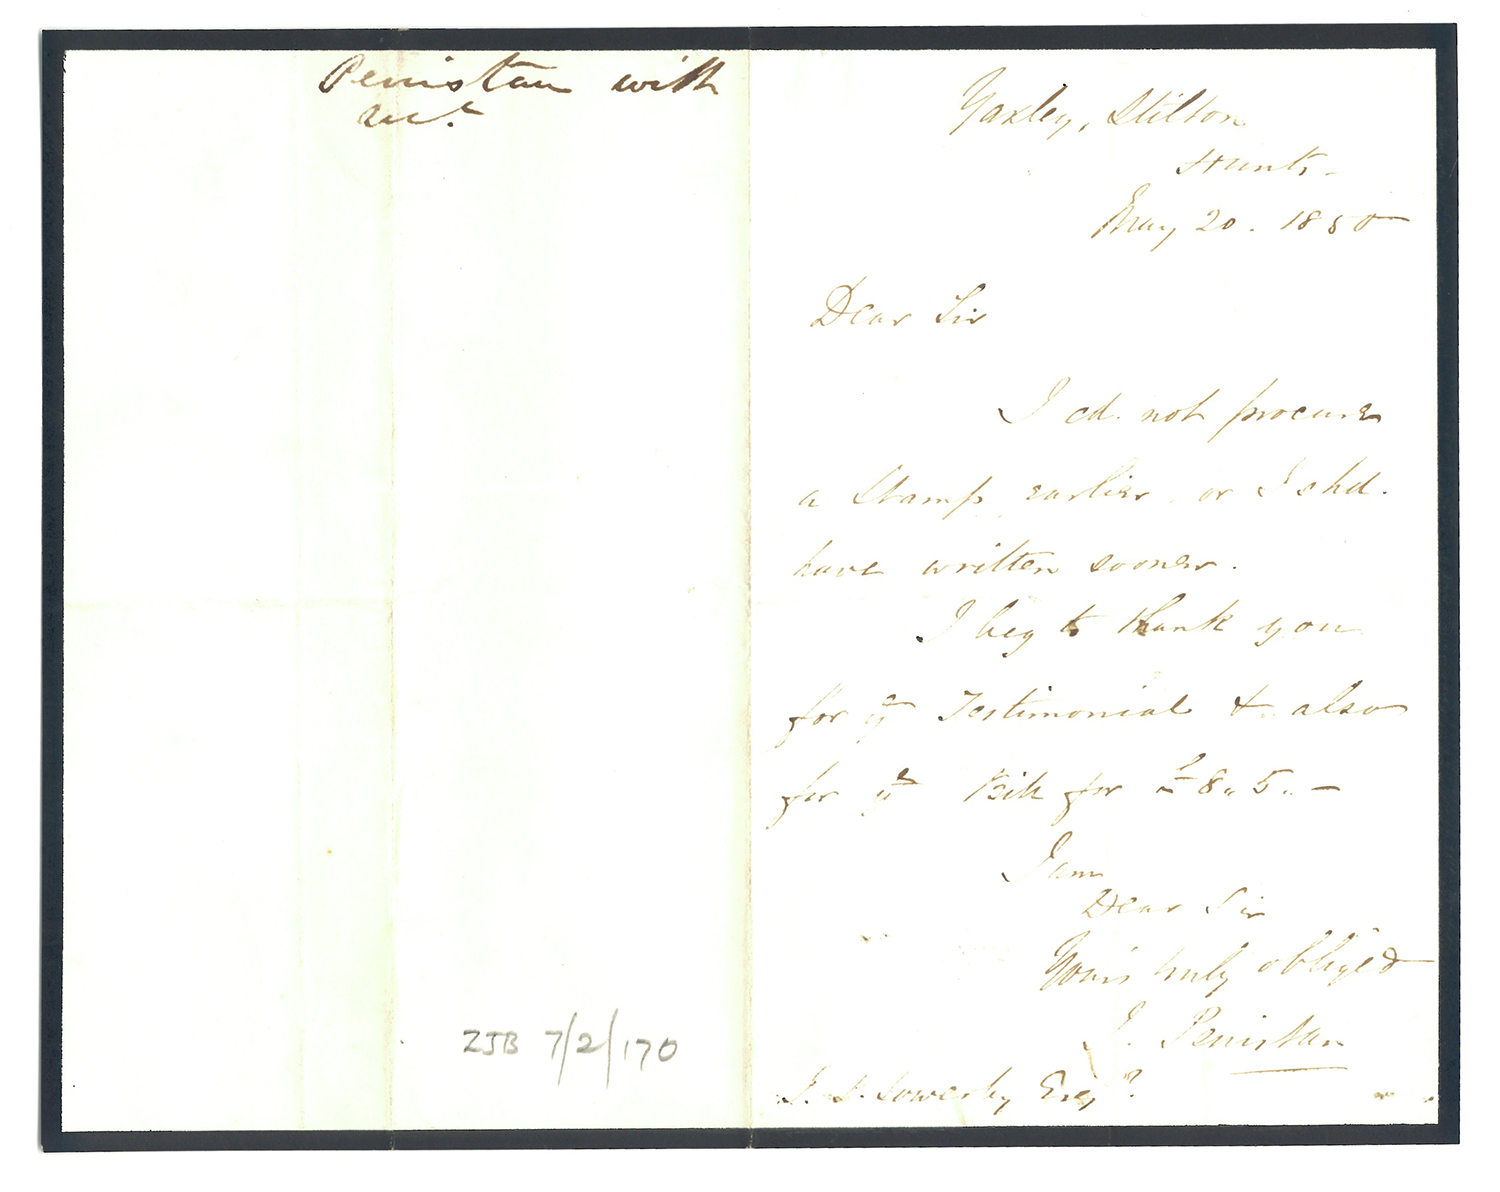 Penistan with
Rect.
ZJB 7/2/170
Yaxley, Stilton
Hunts -
May 20. 1850
Dear Sir
I cd. not procure
a Stamp earlier or I shd.
have written sooner.
I beg to thank you
for yr Testimonial & also
for yr Bill for £8.. 5.. -
I am
Dear Sir
Yours truly obliged
J. Penistan
J. D. Sowerby Esqr.